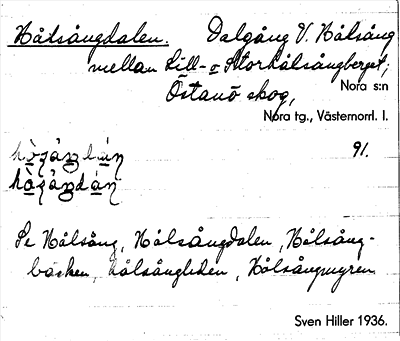 Hålsångdalen. Dalgång V. Hålsång
mellan Lill- o Storhålsångberget;
Östanö skog, Nora s:n
Nora tg., Västernorrl. l.
91.
Se Hålsång, Hålsångdalen, Hålsång-
bäcken, Hålsångliden, Hålsångmyren
Sven Hiller 1936.